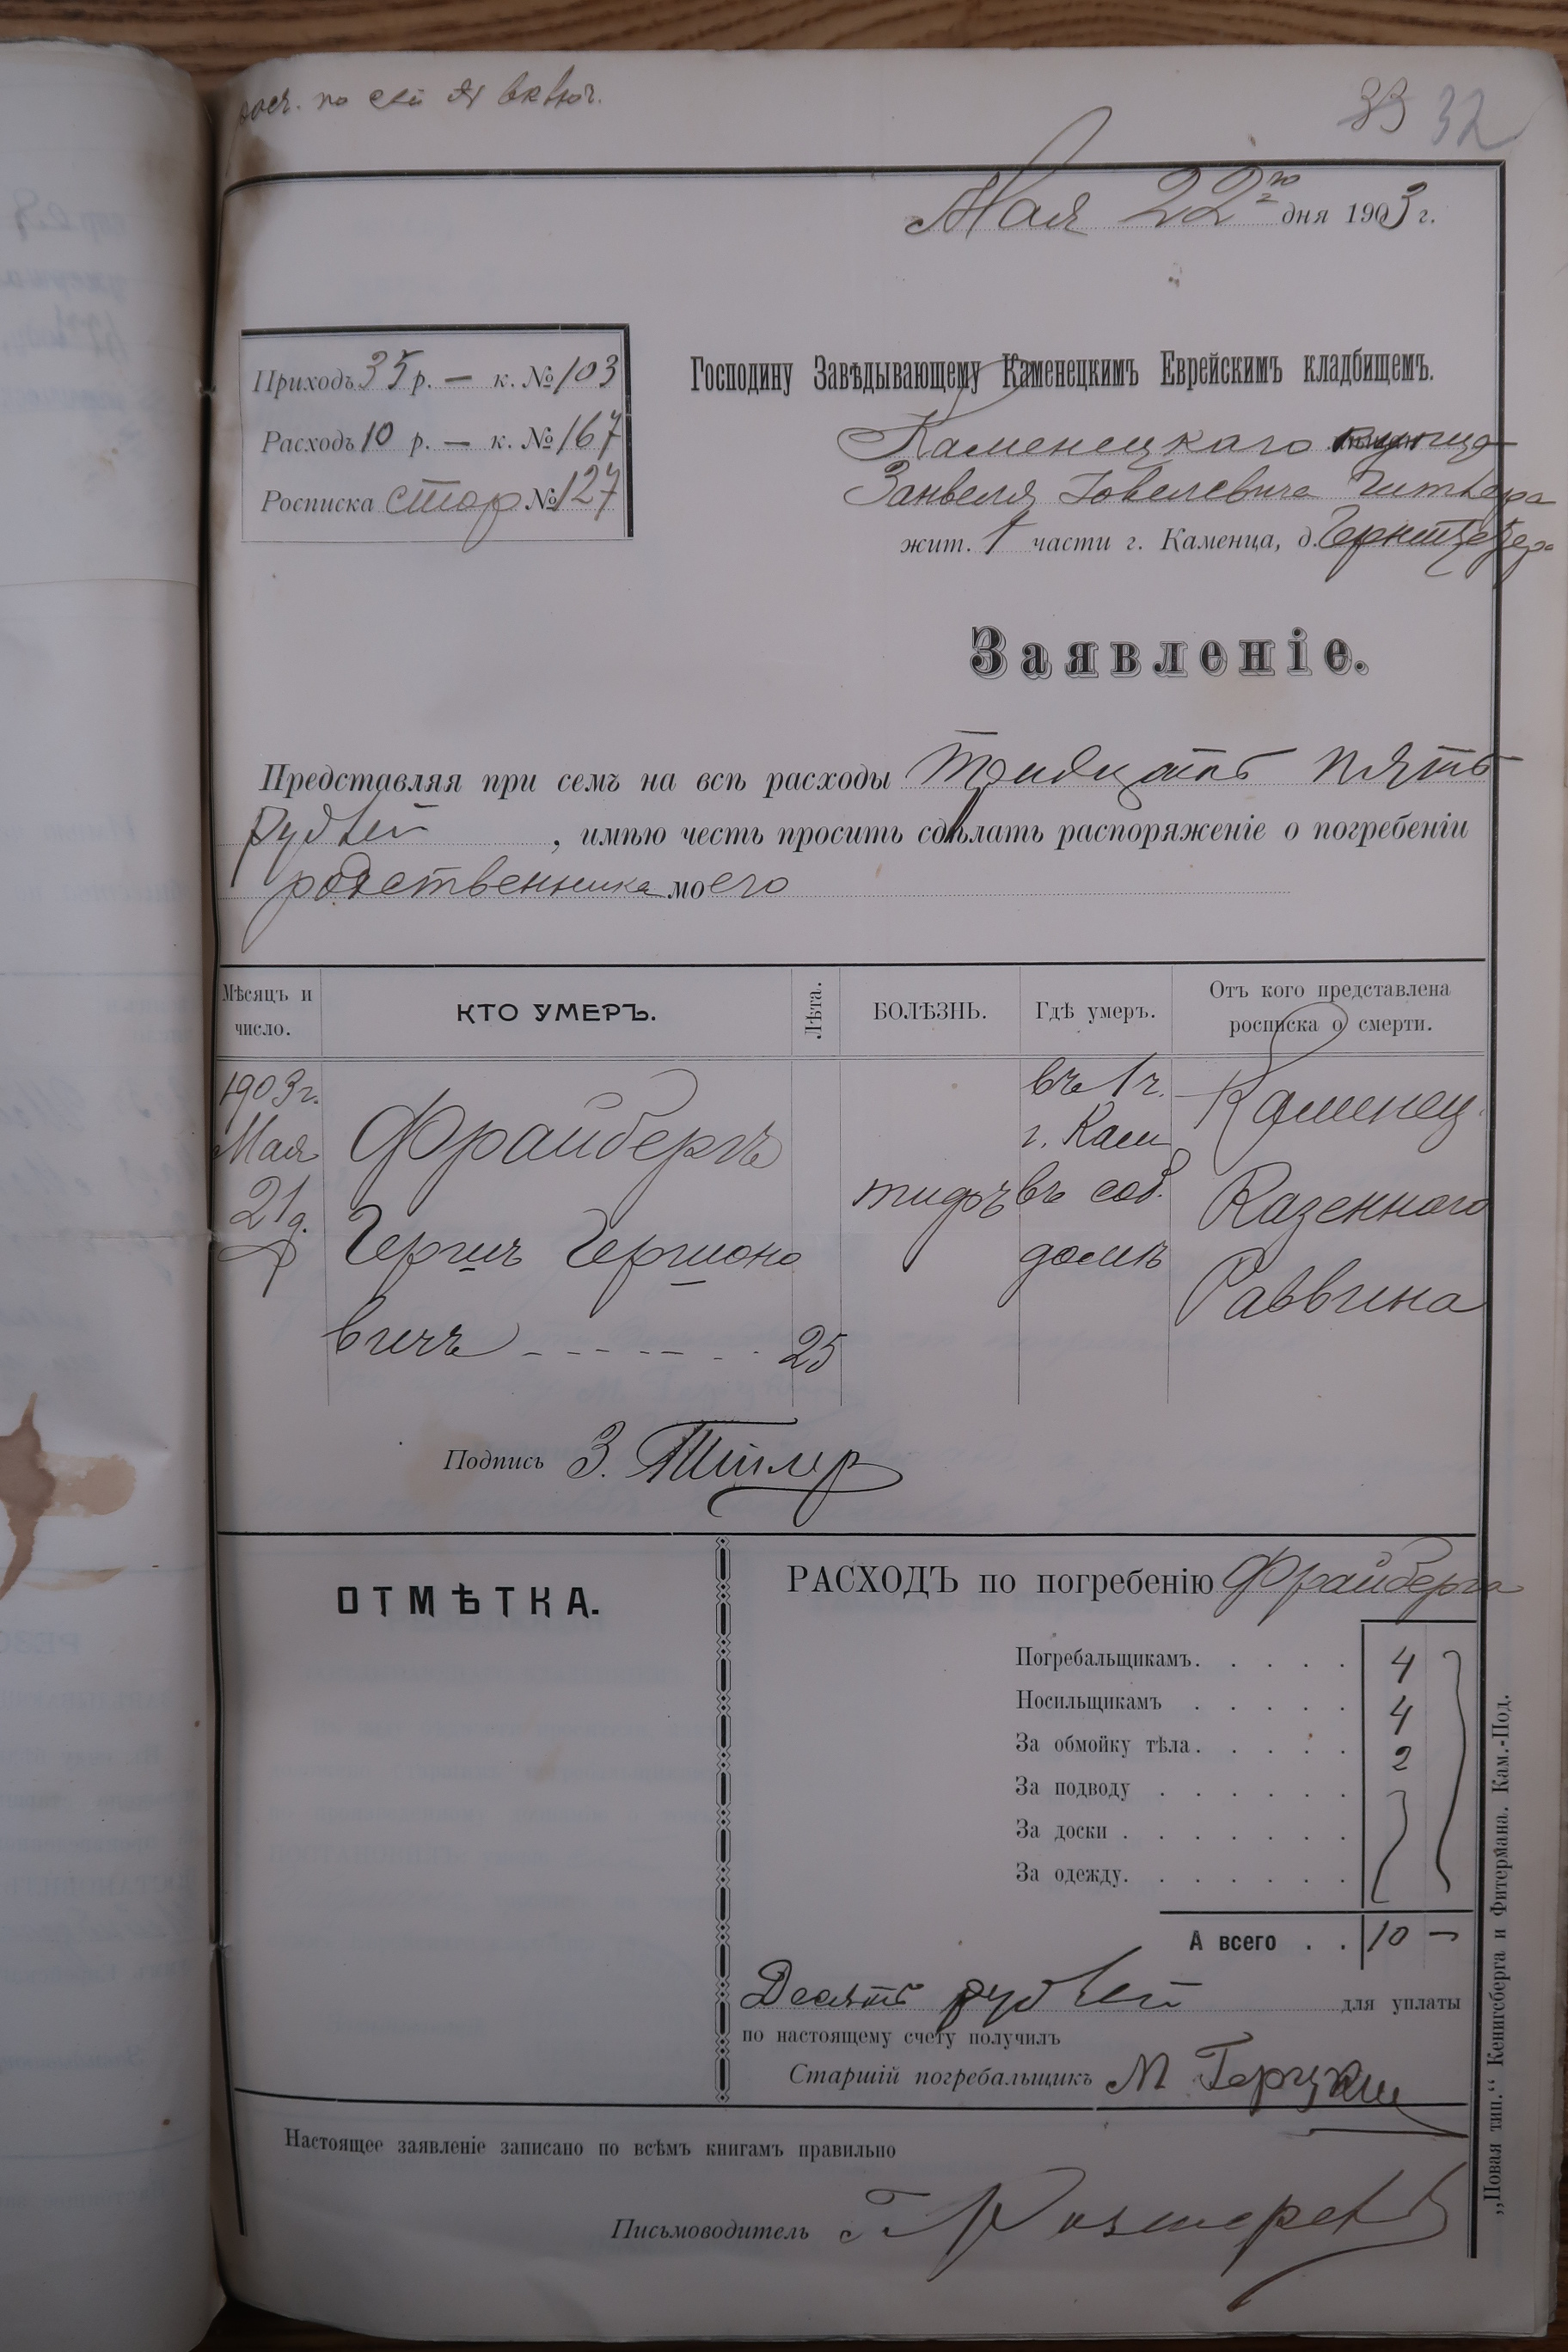 по
33 32
Мая 22го дня 1903 г.
Приходъ 35 р. — к. № 103
Расходъ 10 р. — к. № 167
Росписка стор № 127
Господину Завѣдывающему Каменецкимъ Еврейскимъ кладбищемъ.
Каменецкаго
Занвеля Іовелевича
жит. 1 части г. Каменца, д.
Заявленіе.
Представляя при семъ на всѣ расходы тридцать пять
рублей, имѣю честь просить сдѣлать распоряженіе о погребеніи
родственника моего
Мѣсяцъ и число.
КТО УМЕРЪ.
Лѣта.
БОЛѢЗНЬ.
Гдѣ умеръ.
Отъ кого представлена росписка о смерти.
1903 г.
Мая
21 д.
Фрайбергъ
Гершъ Гершоно
вичъ
25
тифъ
въ 1 ч.
г. Кам
въ соб.
домѣ
Каменец.
Казеннаго
Раввина
Подпись З.
ОТМѢТКА.
РАСХОДЪ по погребенію Фрайберга
Погребальщикамъ. . . . . 4
Носильщикамъ . . . . . 4
За обмойку тѣла. . . . . 2
За подводу . . . . . .
За доски . . . . . . .
За одежду. . . . . . .
А всего . . 10 —
Десять рублей для уплаты
по настоящему счету получилъ
Старшій погребальщикъ М
Настоящее заявленіе записано по всѣмъ книгамъ правильно
Письмоводитель
„Новая тип.“ Кенигсберга и Фитермана. Кам.-Под.